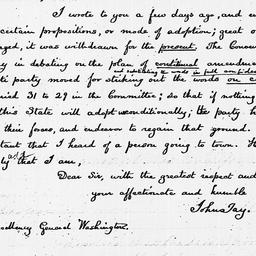 I wrote to you a few days ago, and en
certain propositions, or mode of adoption; great o
ged, it was withdrawn for the present. The Conven
y in debating on the plan of conditional amendme
and substituting the words in full confidence
ti party moved for striking out the words on c
ried 31 to 29 in the Committee; so that if nothing
this State will adopt unconditionally; the party h
their forces, and endeavor to regain that ground.
tant that I heard of a person going to town.
that I am,
Dear Sir, with the greatest respect and
your affectionate and humble
John Jay.
ellency General Washington.